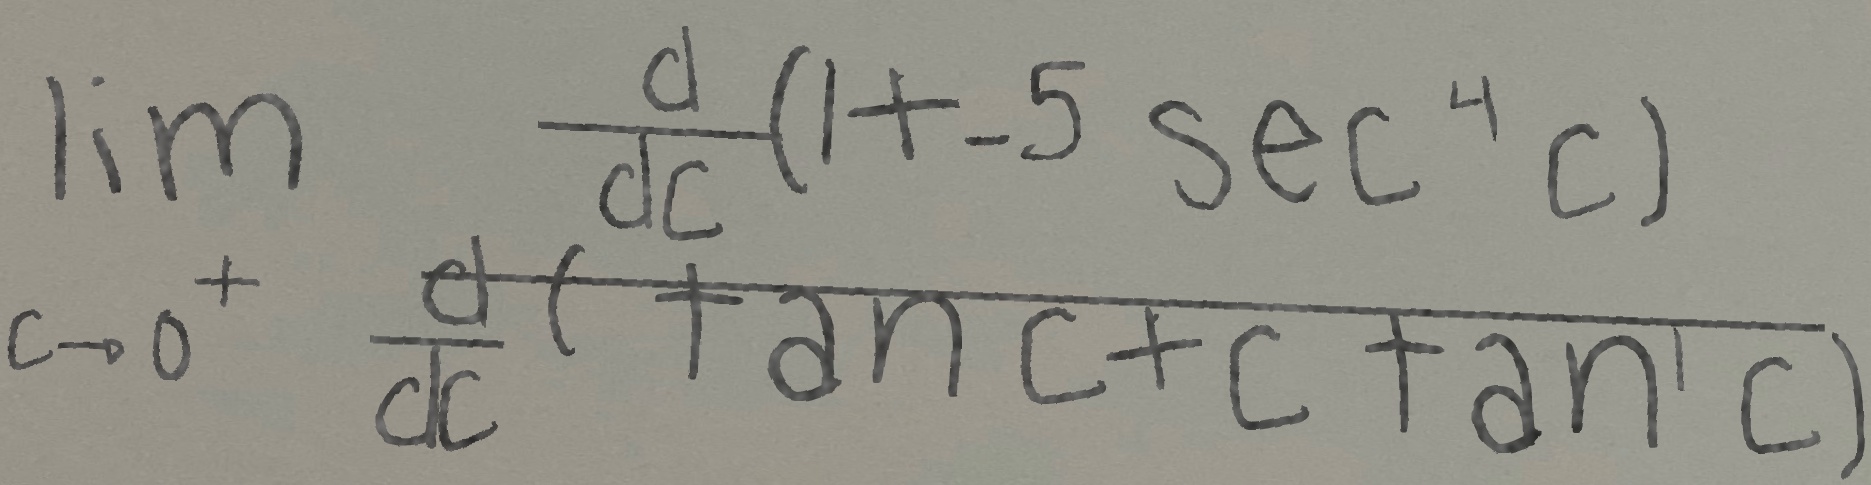 \lim_{c \to 0^+} \frac{\frac{d}{dc}(1 + -5 \sec^4 c)}{\frac{d}{dc}(\tan c + c \tan' c)}